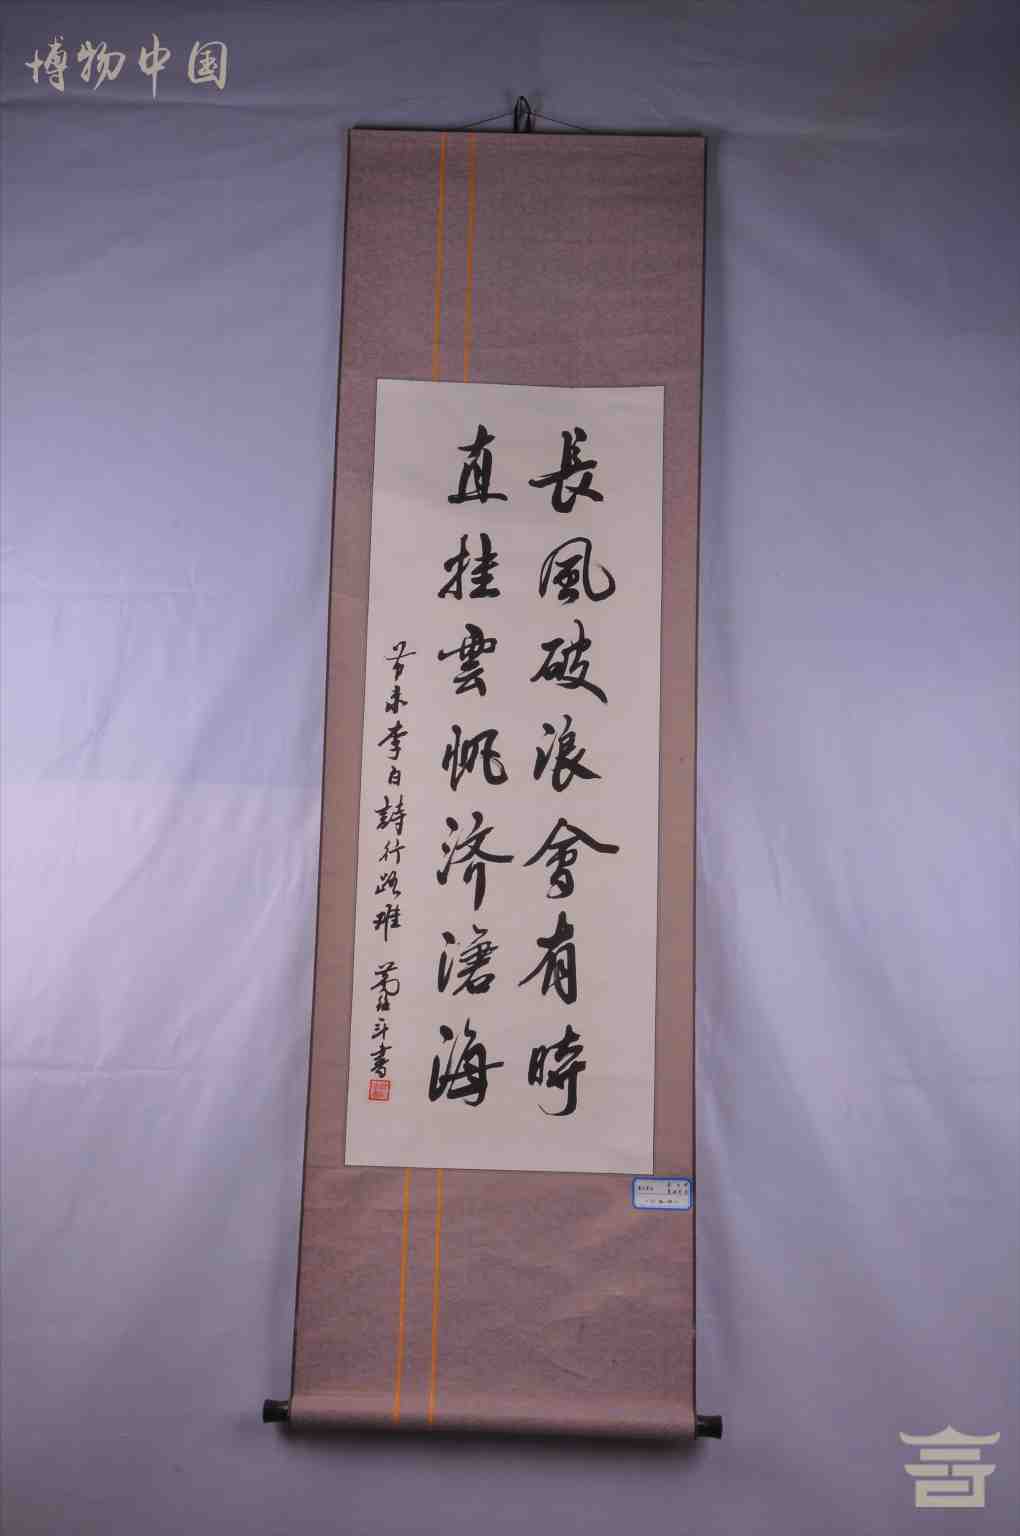 博物中国
長風破浪會有時
直挂雲帆济滄海
节录李白詩行路難
斗書